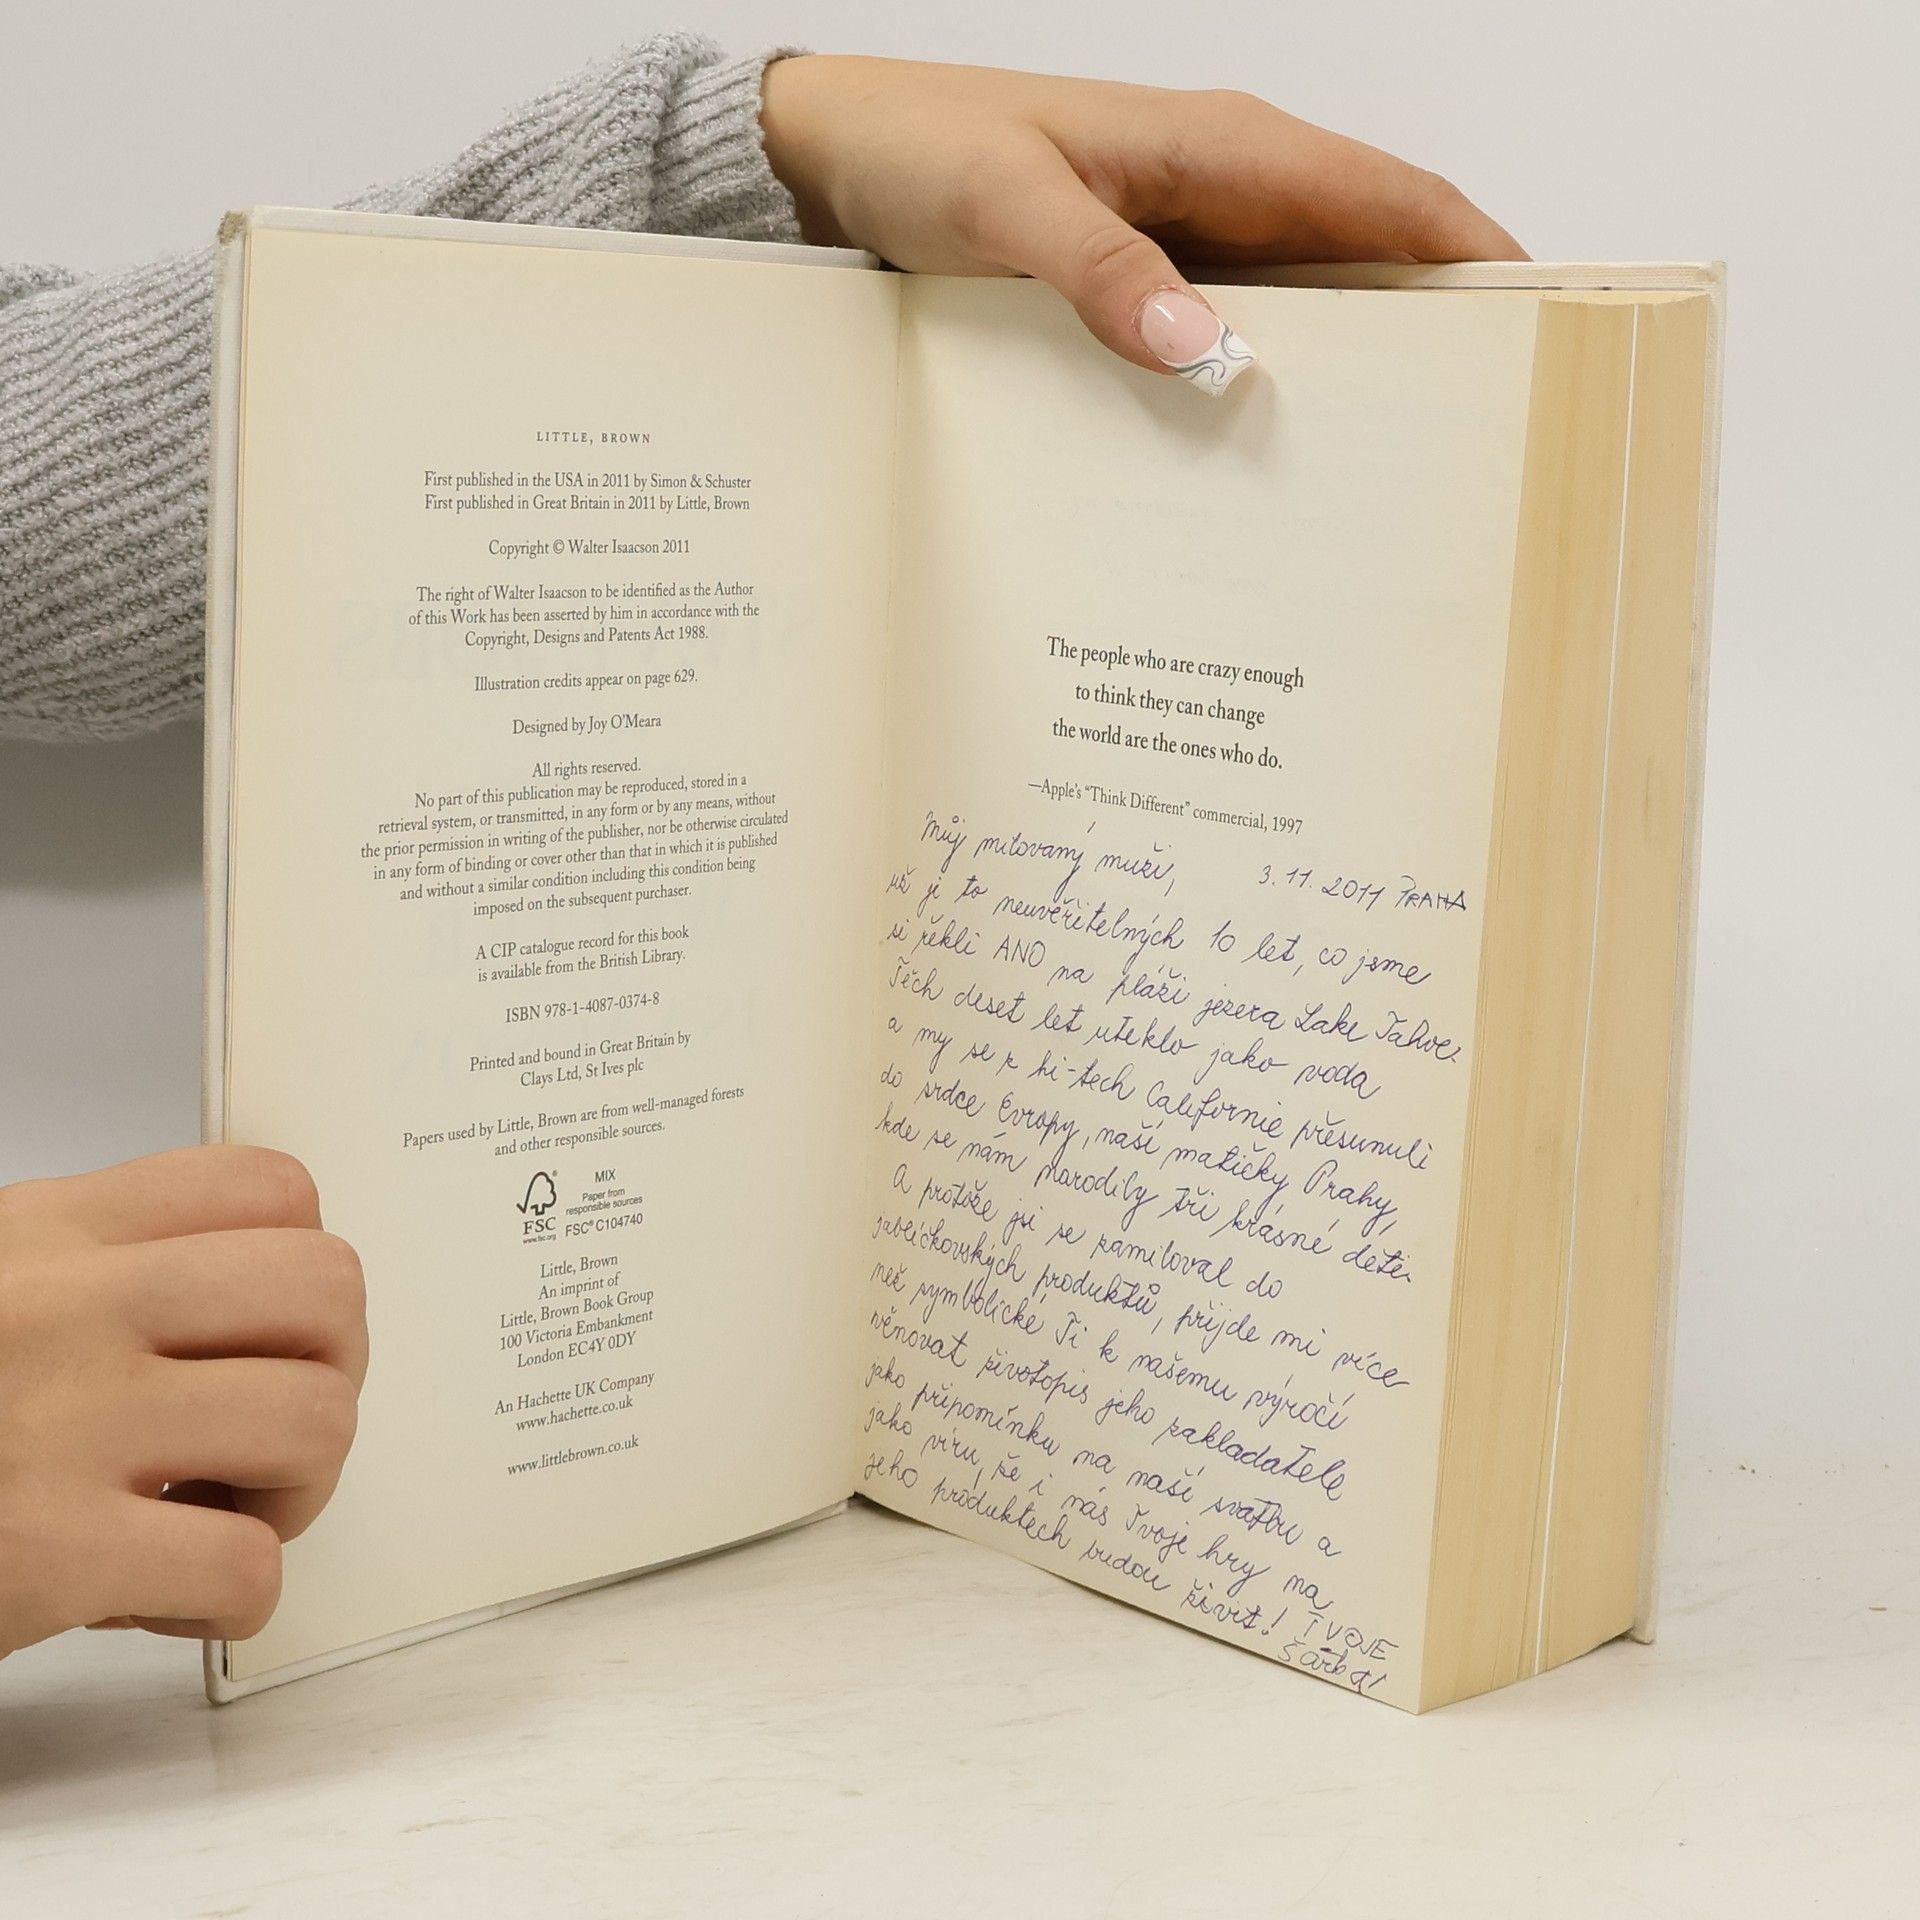 LITTLE, BROWN
First published in the USA in 2011 by Simon & Schuster
First published in Great Britain in 2011 by Little, Brown
Copyright © Walter Isaacson 2011
The right of Walter Isaacson to be identified as the Author
of this Work has been asserted by him in accordance with the
Copyright, Designs and Patents Act 1988.
Illustration credits appear on page 629.
Designed by Joy O'Meara
All rights reserved.
No part of this publication may be reproduced, stored in a
retrieval system, or transmitted, in any form or by any means, without
the prior permission in writing of the publisher, nor be otherwise circulated
in any form of binding or cover other than that in which it is published
and without a similar condition including this condition being
imposed on the subsequent purchaser.
A CIP catalogue record for this book
is available from the British Library.
ISBN 978-1-4087-0374-8
Printed and bound in Great Britain by
Clays Ltd, St Ives plc
Papers used by Little, Brown are from well-managed forests
and other responsible sources.
FSC
www.fsc.org
MIX
Paper from
responsible sources
FSC® C104740
Little, Brown
An imprint of
Little, Brown Book Group
100 Victoria Embankment
London EC4Y 0DY
An Hachette UK Company
www.hachette.co.uk
www.littlebrown.co.uk
The people who are crazy enough
to think they can change
the world are the ones who do.
—Apple's "Think Different" commercial, 1997
Můj milovaný muži, 3.11.2011 PRAHA
už je to neuvěřitelných 10 let, co jsme
si řekli ANO na pláži jezera Lake Tahoe.
Těch deset let uteklo jako voda
a my se z hi-tech Californie přesunuli
do srdce Evropy, naší matičky Prahy,
kde se nám narodily tři krásné děti.
A protože jsi se zamiloval do
jablíčkovských produktů, přijde mi více
než symbolické Ti k našemu výročí
věnovat životopis jeho zakladatele
jako připomínku na naší svatbu a
jako víru, že i nás Tvoje hry na
jeho produktech budou živit! TVOJE
Šárka!